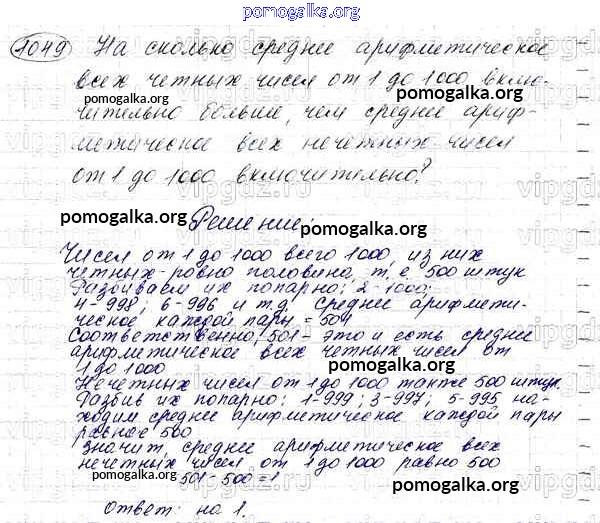 pomogalka.org
1049 На сколько среднее арифметическое
всех четных чисел от 1 до 1000 вклю-
pomogalka.org pomogalka.org
чительно больше, чем среднее ариф-
метическое всех нечетных чисел
pomogalka.org
от 1 до 1000 включительно?
vipgdz.ru
pomogalka.org Решение: pomogalka.org
Чисел от 1 до 1000 всего 1000, из них
четных - ровно половина, т.е 500 штук
Разбиваем их попарно: 2-1000;
4-998; 6-996 и т.д Среднее арифмети-
ческое каждой пары = 501
Соответственно, 501 - это и есть среднее
арифметическое всех четных чисел от
1 до 1000
pomogalka.org
Нечетных чисел от 1 до 1000 также 500 штук.
Разбив их попарно: 1-999; 3-997; 5-995 на-
ходим среднее арифметическое каждой пары
равное 500
pomogalka.org pomogalka.org
Значит, среднее арифметическое всех
нечетных чисел от 1 до 1000 равно 500
501-500=1
pomogalka.org
Ответ: на 1.
pomogalka.org